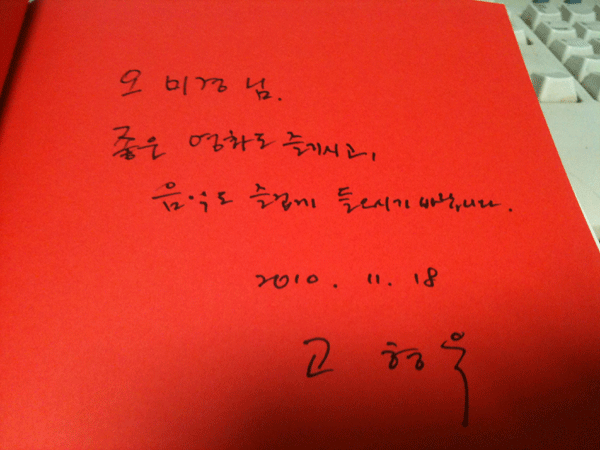 오 미경 님.
좋은 영화도 즐기시고,
음악도 즐겁게 들으시기 바랍니다.
2010. 11. 18
고 형욱